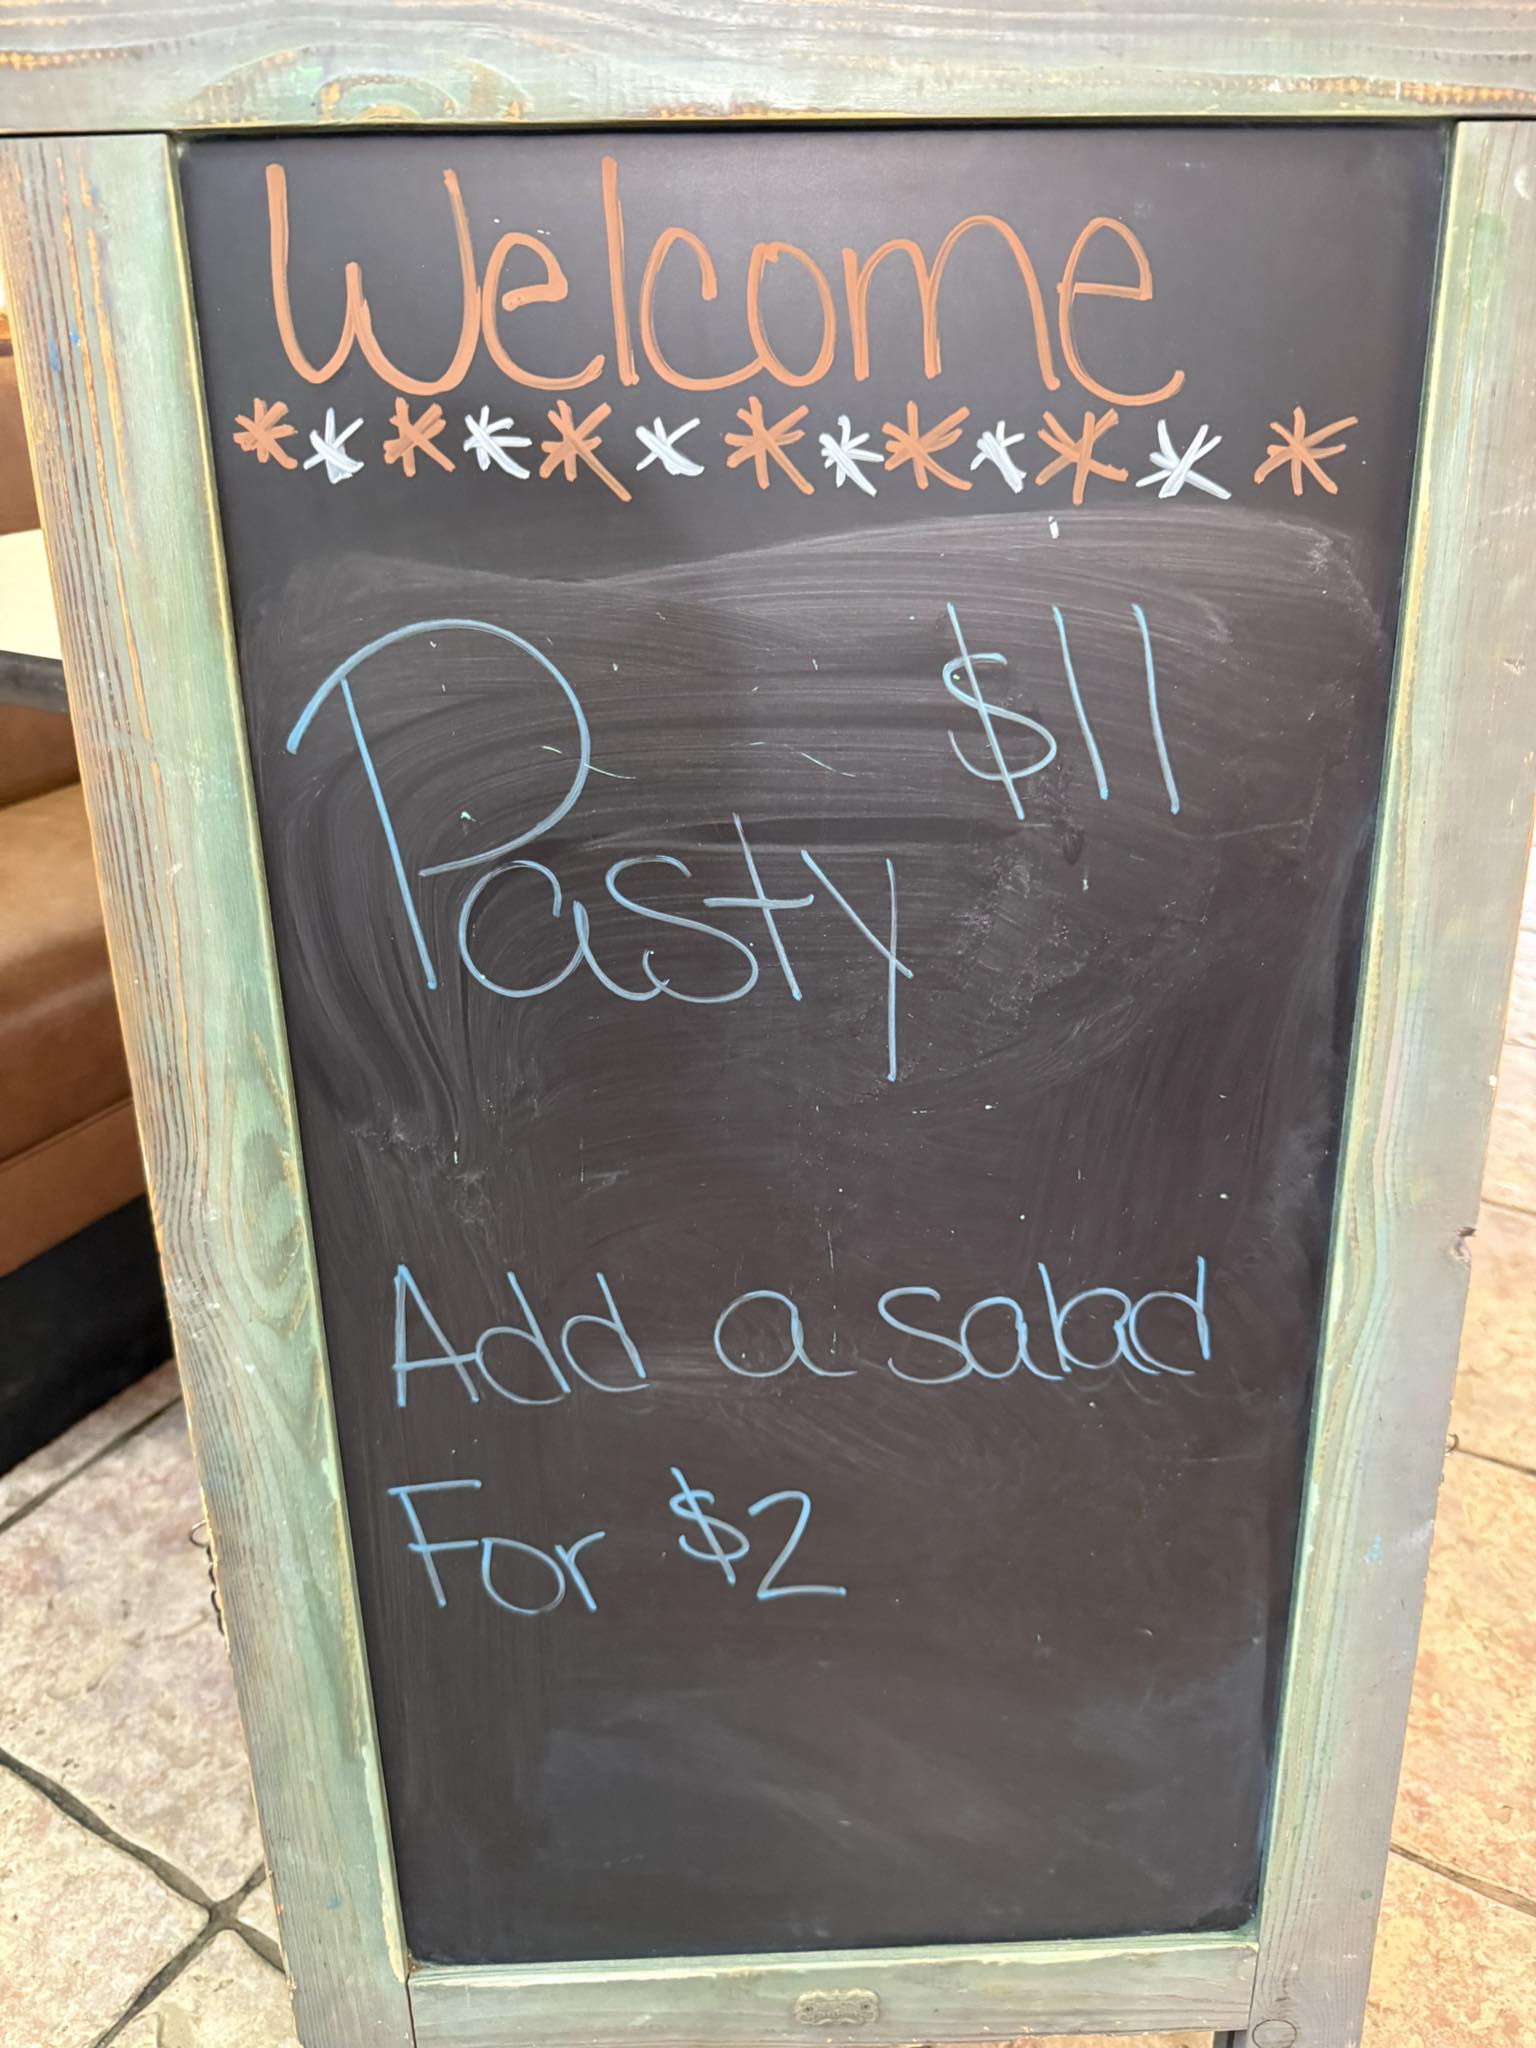 Welcome
Pasty $11
Add a salad
For $2